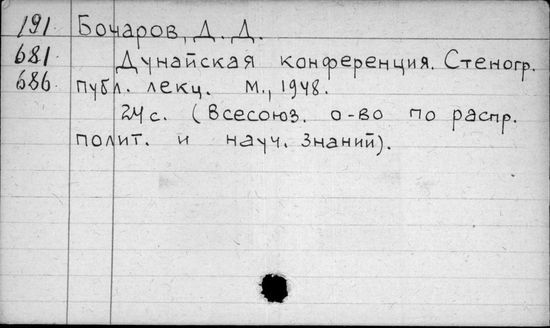 191 Бочаров, Д. Д.
681 Дунайская конференция. Стеногр.
686 публ. лекц. М., 1948.
24с. (Всесоюз. о-во по распр.
полит. и науч. Знаний).